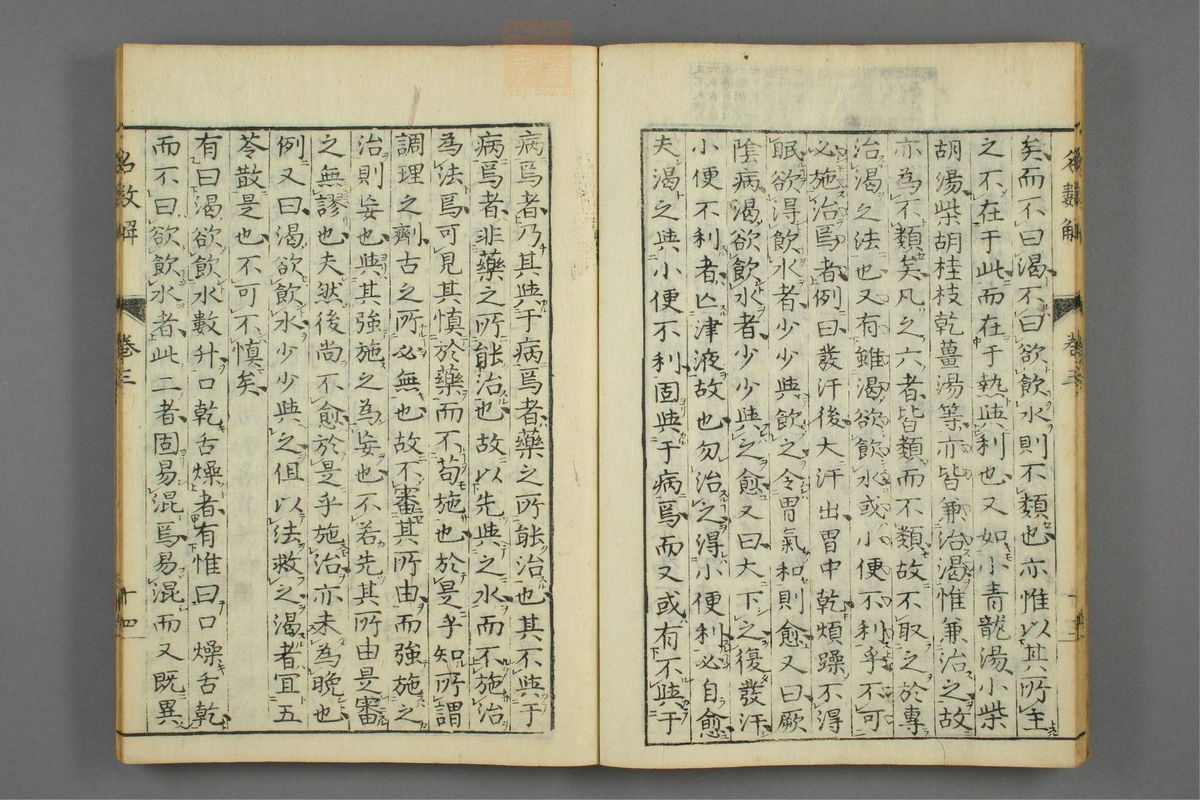 矣而不曰渴不曰欲飲水則不類也亦惟以其所主
之不在于此而在于熱與利也又如小青龍湯小柴
胡湯柴胡桂枝乾薑湯等亦皆兼治渴惟兼治之故
亦為不類矣凡之六者皆類而不類故不取之於專
治渴之法也又有雖渴欲飲水或小便不利乎不可
必施治焉者例曰發汗後大汗出胃中乾煩躁不得
眠欲得飲水者少少與飲之令胃氣和則愈又曰厥
陰病渴欲飲水者少少與之愈又曰大下之後發汗
小便不利者亾津液故也勿治之得小便利必自愈
夫渴之與小便不利固與于病焉而又或有不與于
名數解
卷三
病焉者乃其與于病焉者藥之所能治也其不與于
病焉者非藥之所能治也故以先與之水而不施治
為法焉可見其慎於藥而不苟施也於是乎知所謂
調理之劑古之所必無也故不審其所由而強施之
治則妄也與其強施之為妄也不若先其所由是審
之無謬也夫然後尚不愈於是乎施治亦未為晚也
例又曰渴欲飲水少少與之但以法救之渴者宜五
苓散是也不可不慎矣
有曰渴欲飲水數升口乾舌燥者有惟曰口燥舌乾
而不曰欲飲水者此二者固易混焉易混而又既異
名數解
卷三
十四